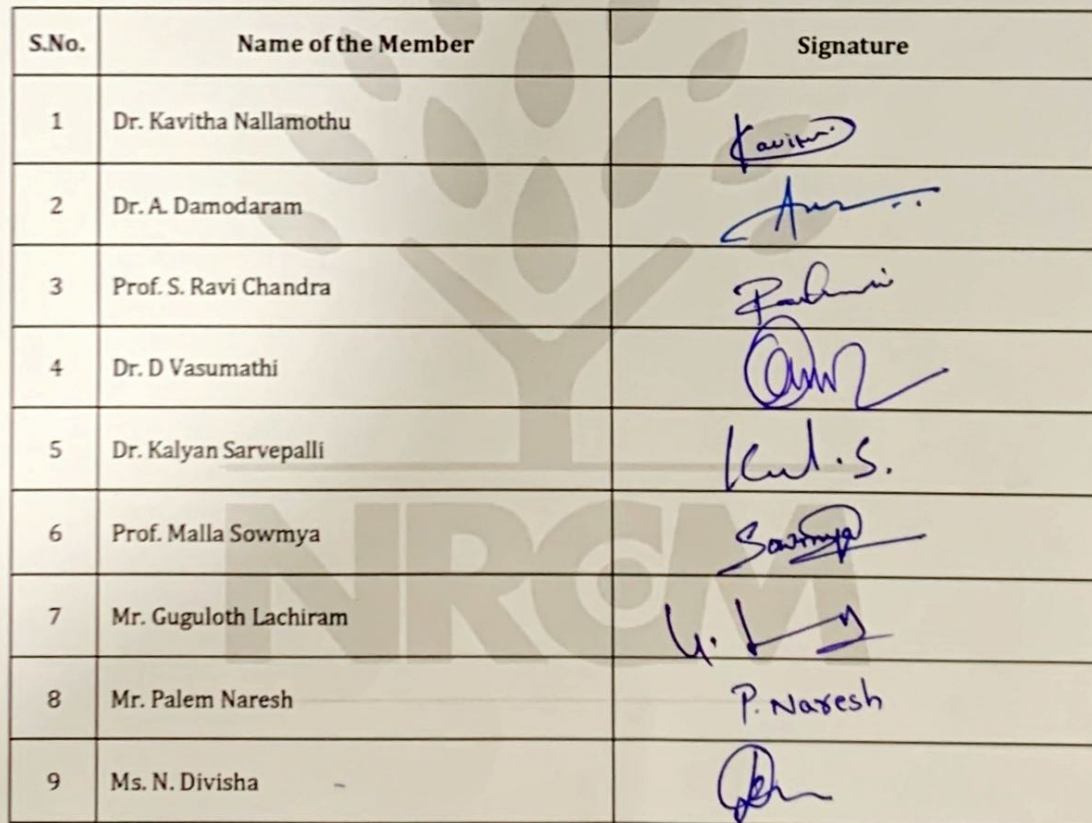 S.No. Name of the Member Signature
1 Dr. Kavitha Nallamothu Kavitha
2 Dr. A. Damodaram
3 Prof. S. Ravi Chandra
4 Dr. D Vasumathi
5 Dr. Kalyan Sarvepalli
6 Prof. Malla Sowmya Sowmya
7 Mr. Guguloth Lachiram
8 Mr. Palem Naresh P. Naresh
9 Ms. N. Divisha
NRCM